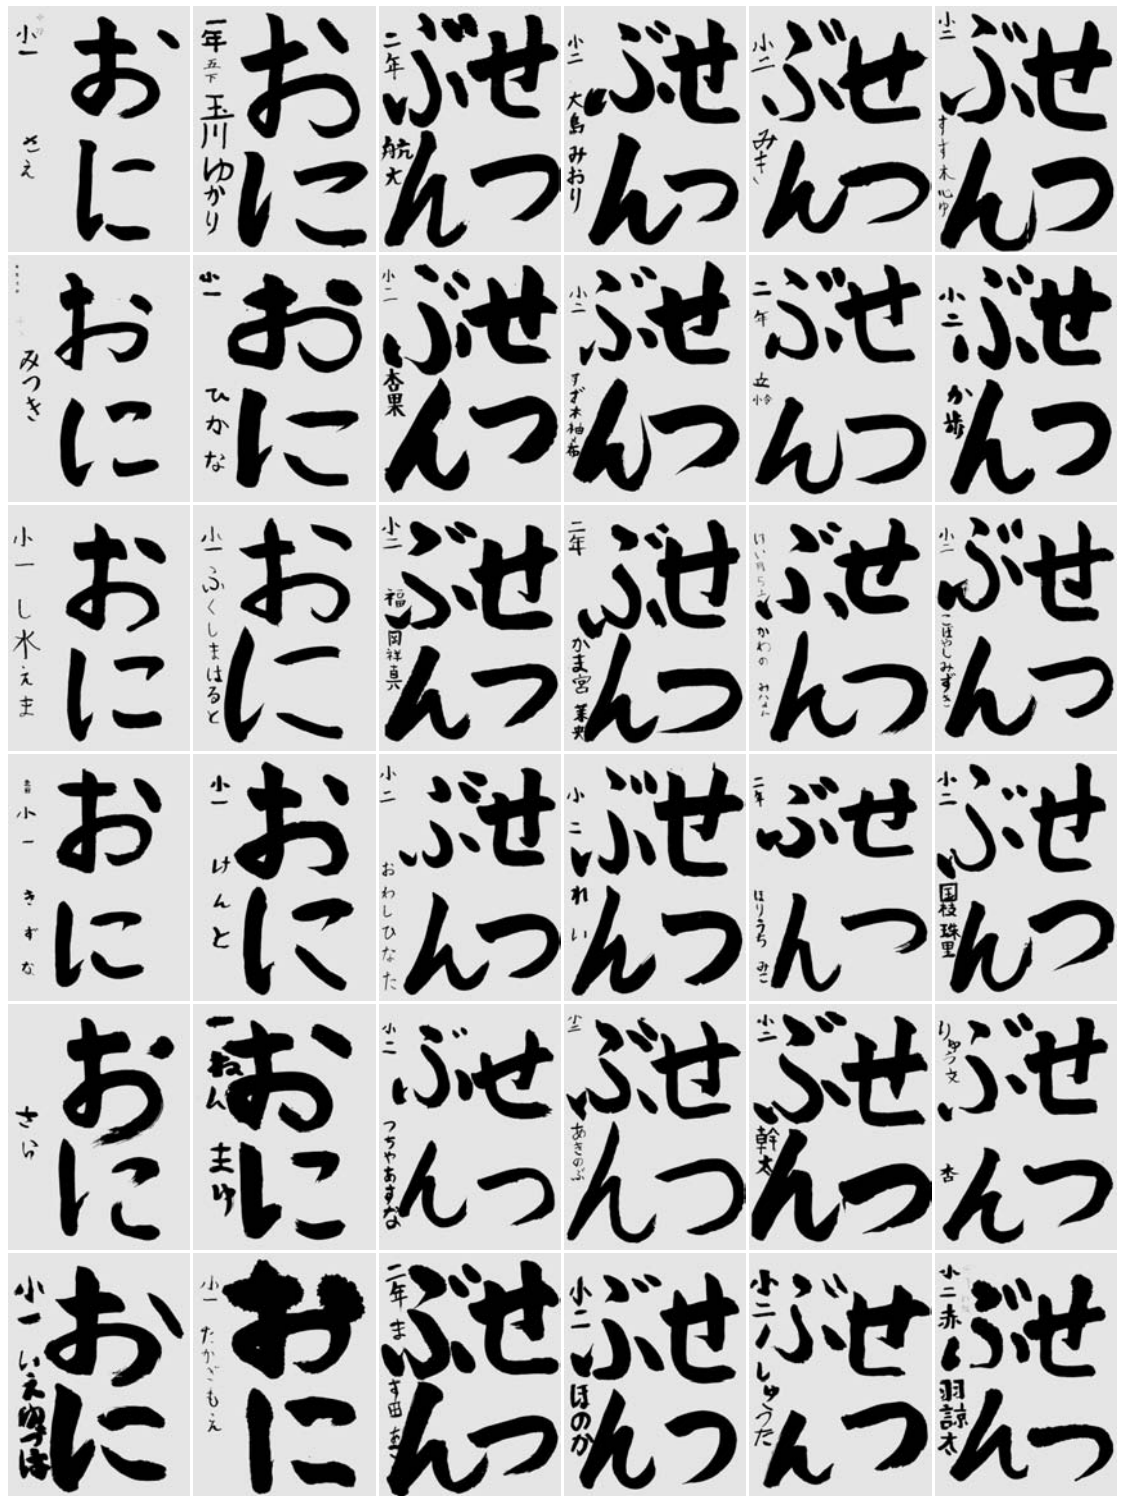 おに
小一
さえ
おに
一年
玉川ゆかり
せつ
ぶん
二年
航大
せつ
ぶん
小二
大島みおり
せつ
ぶん
小二
みき
せつ
ぶん
小二
すず木心ゆ
おに
みつき
おに
小一
ひかな
せつ
ぶん
小二
杏果
せつ
ぶん
小二
すず木柚希
せつ
ぶん
二年
せつ
ぶん
小二
か歩
おに
小一
し水えま
おに
小一
ふくしまはると
せつ
ぶん
小二
福岡祥真
せつ
ぶん
二年
かま宮菜央
せつ
ぶん
かわの
せつ
ぶん
小二
こばやしみずき
おに
小一
きずな
おに
小一
けんと
せつ
ぶん
小二
おわしひなた
せつ
ぶん
小二
れい
せつ
ぶん
二年
ほりうちみこ
せつ
ぶん
小二
国枝珠里
おに
さら
おに
一ねん
まゆ
せつ
ぶん
小二
つちやあすな
せつ
ぶん
小二
あきのぶ
せつ
ぶん
小二
幹太
せつ
ぶん
りゅう文
杏
おに
小一
おに
小一
たかぎもえ
せつ
ぶん
二年
ます田
せつ
ぶん
小二
ほのか
せつ
ぶん
小二
しゅうた
せつ
ぶん
小二
赤羽諒太